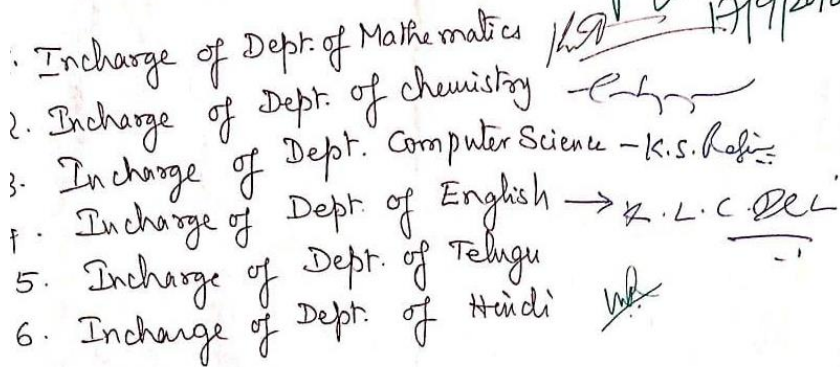 . Incharge of Dept. of Mathematics
2. Incharge of Dept. of chemistry
3. Incharge of Dept. Computer Science - K.S.
4. Incharge of Dept. of English → K. L. C.
5. Incharge of Dept. of Telugu
6. Incharge of Dept. of Hindi